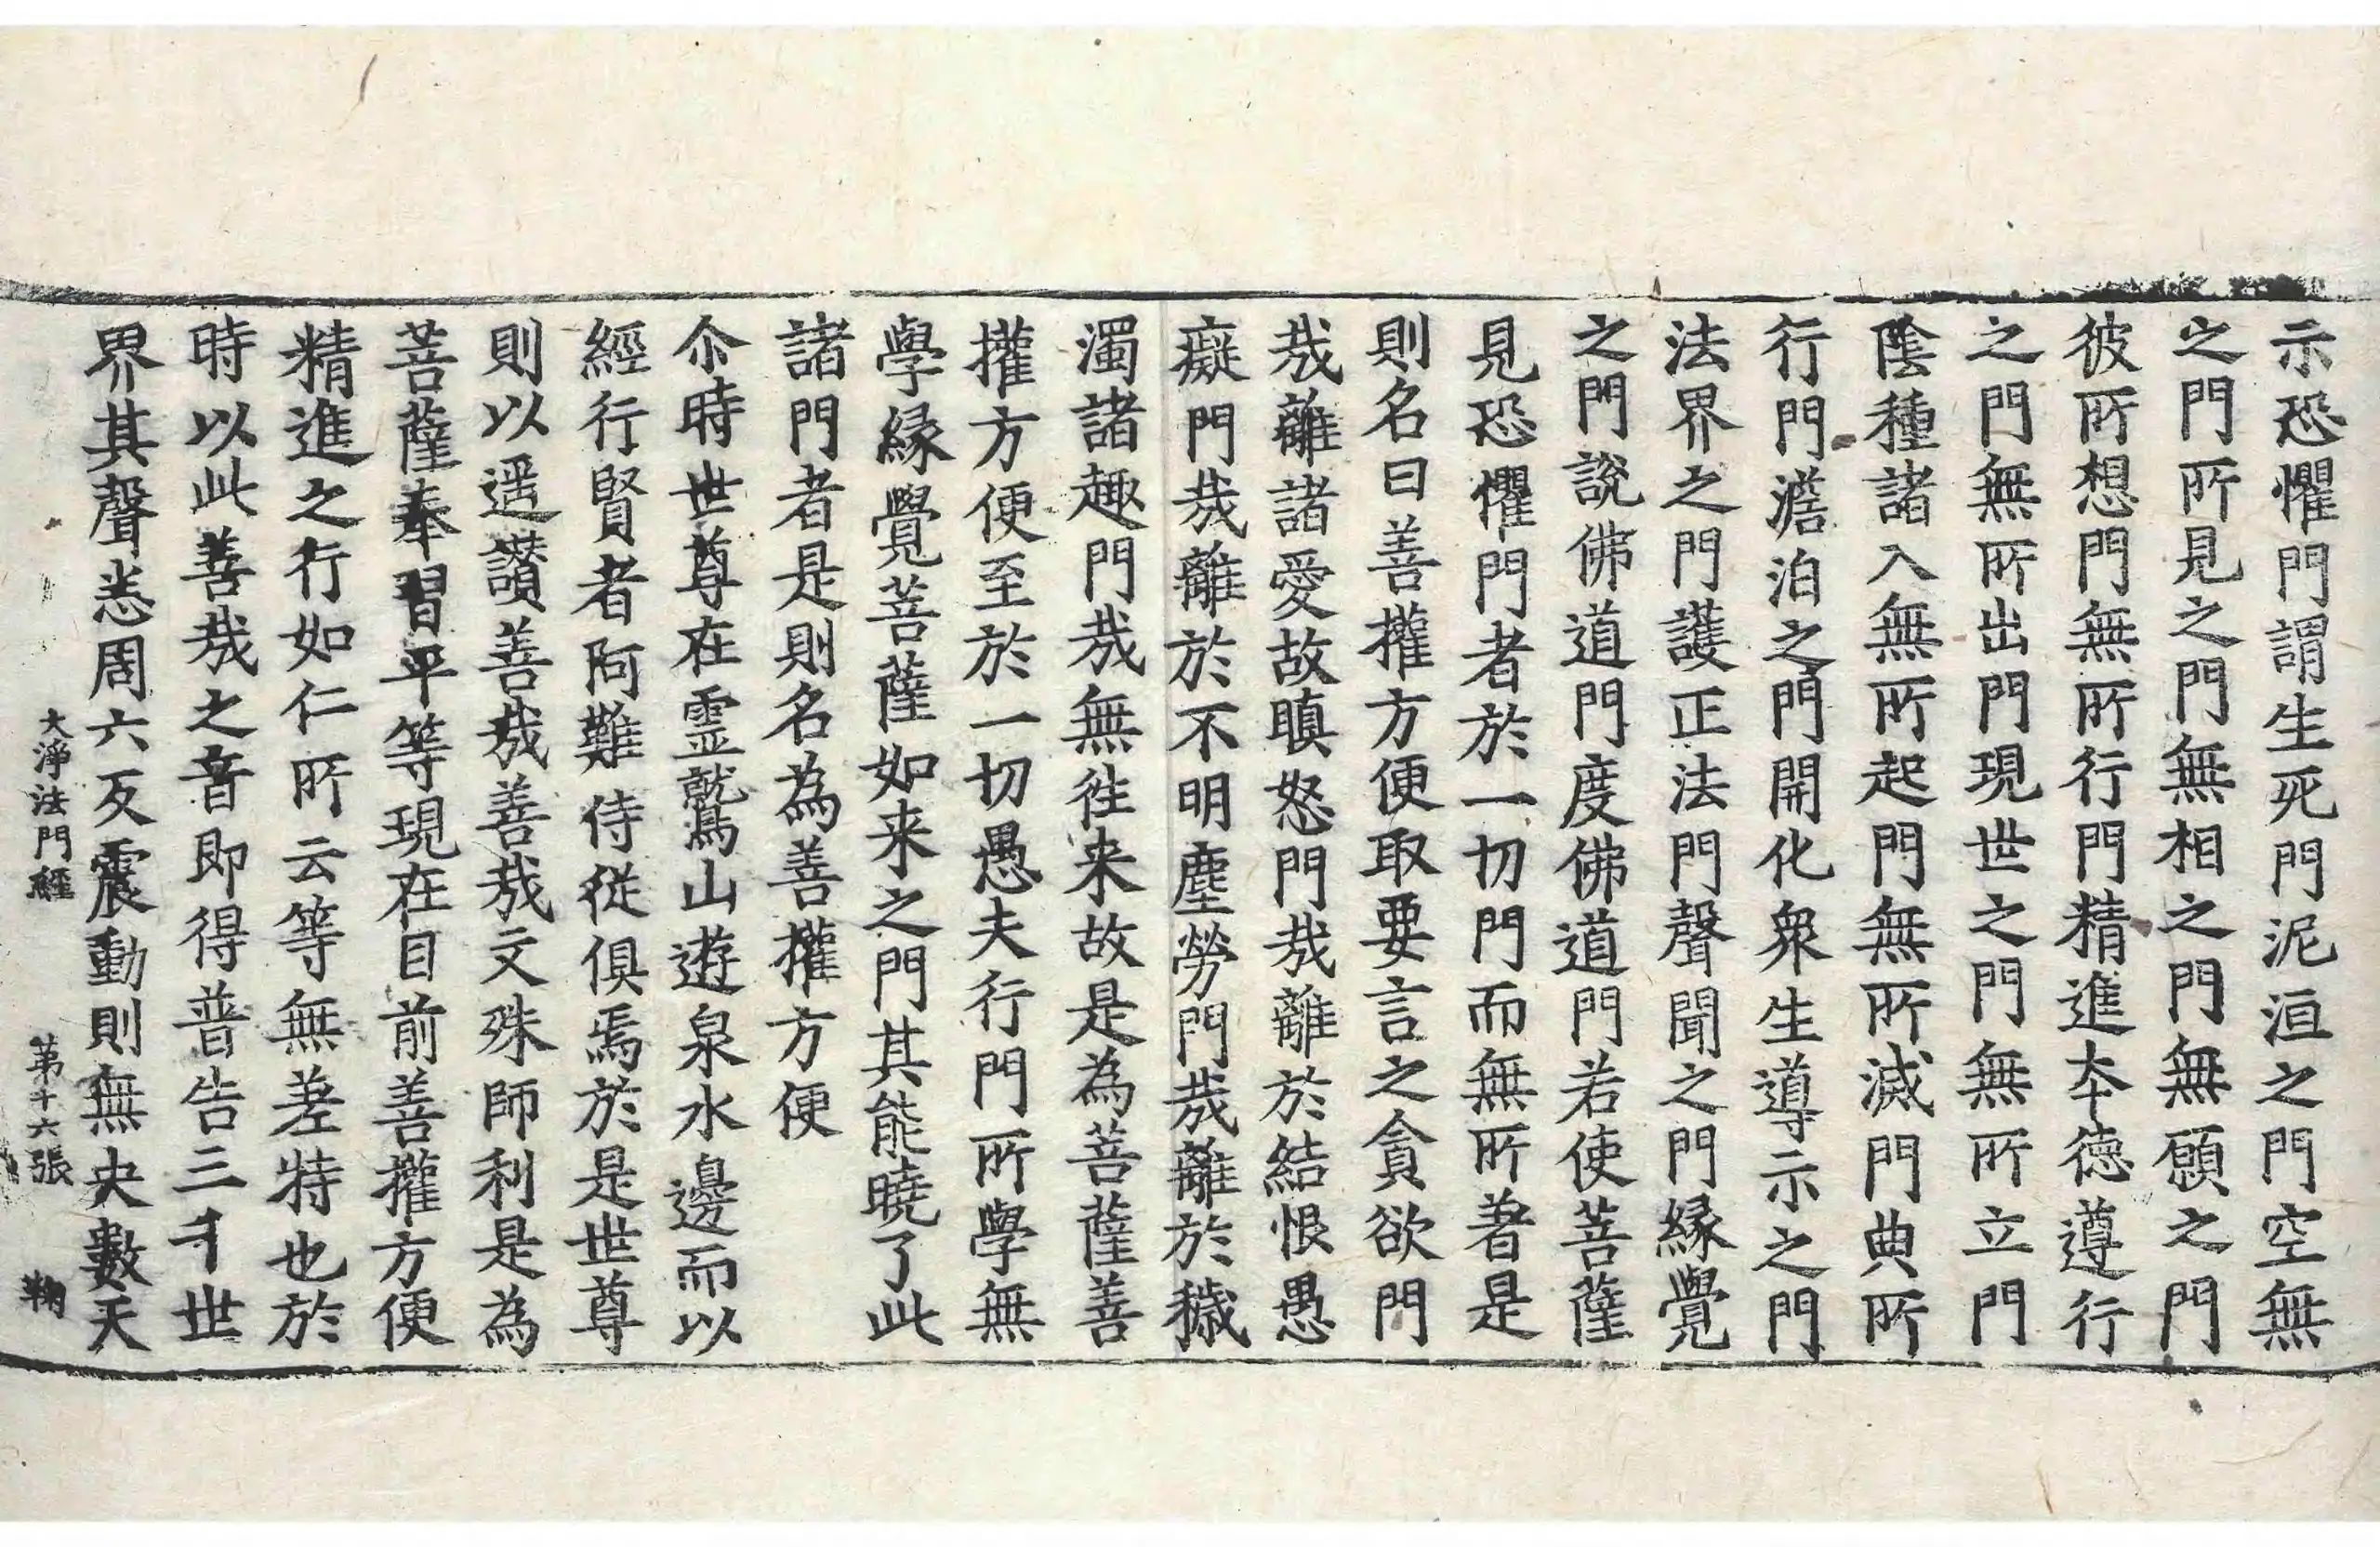 示恐懼門謂生死門泥洹之門空無
之門所見之門無相之門無願之門
彼所想門無所行門精進夲德遵行
之門無所出門現世之門無所立門
陰種諸入無所起門無所滅門典所
行門澹泊之門開化衆生導示之門
法界之門護正法門聲聞之門緣覺
之門說佛道門度佛道門若使菩薩
見恐懼門者於一切門而無所著是
則名曰善權方便取要言之貪欲門
㢤離諸愛故瞋怒門㢤離於結恨愚
癡門㢤離於不明塵勞門㢤離於穢
濁諸趣門㢤無徃來故是為菩薩善
權方便至於一切愚夫行門所學無
學緣覺菩薩如来之門其能曉了此
諸門者是則名為善權方便
尒時世尊在靈鷲山遊泉水邊而以
經行賢者阿難侍從俱焉於是世尊
則以遥讚善㢤善㢤文殊師利是為
菩薩奉習平等現在目前善權方便
精進之行如仁所云等無差特也於
時以此善㢤之音即得普告三千世
界其聲悉周六反震動則無央數天
大淨法門經 第十六張 鞠